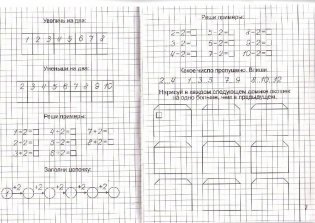 Увеличь на два:
1 2 3 4 5 6 7 8
Уменьши на два:
2 3 4 5 6 7 8 9 10
Реши примеры:
1+2=□ 4+2=□ 7+2=□
2+2=□ 5+2=□ 8+2=□
3+2=□ 6+2=□
Заполни цепочку:
+2 +2 +2 +2
Реши примеры:
2-2=□ 5-2=□ 8-2=□
3-2=□ 6-2=□ 9-2=□
4-2=□ 7-2=□ 10-2=□
Какое число пропущено. Впиши.
2, 4 1, 3 3, 7, 9 8, 10, 12
Нарисуй в каждом следующем домике окошек
на одно больше, чем в предыдущем.